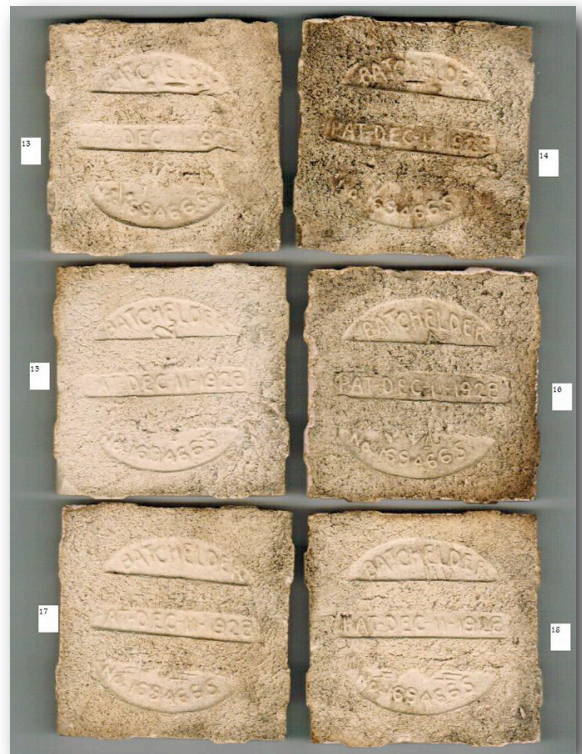 13
BATCHELDER
DEC 11-192
No 1694665
14
BATCHELDER
PAT-DEC-11-1928
No 1694665
15
BATCHELDER
PAT DEC 11-1928
No 1694665
16
BATCHELDER
PAT-DEC-11-1928
No 1694665
17
BATCHELDER
PAT-DEC-11-1928
No 1694665
18
BATCHELDER
PAT-DEC-11-1928
No 1694665